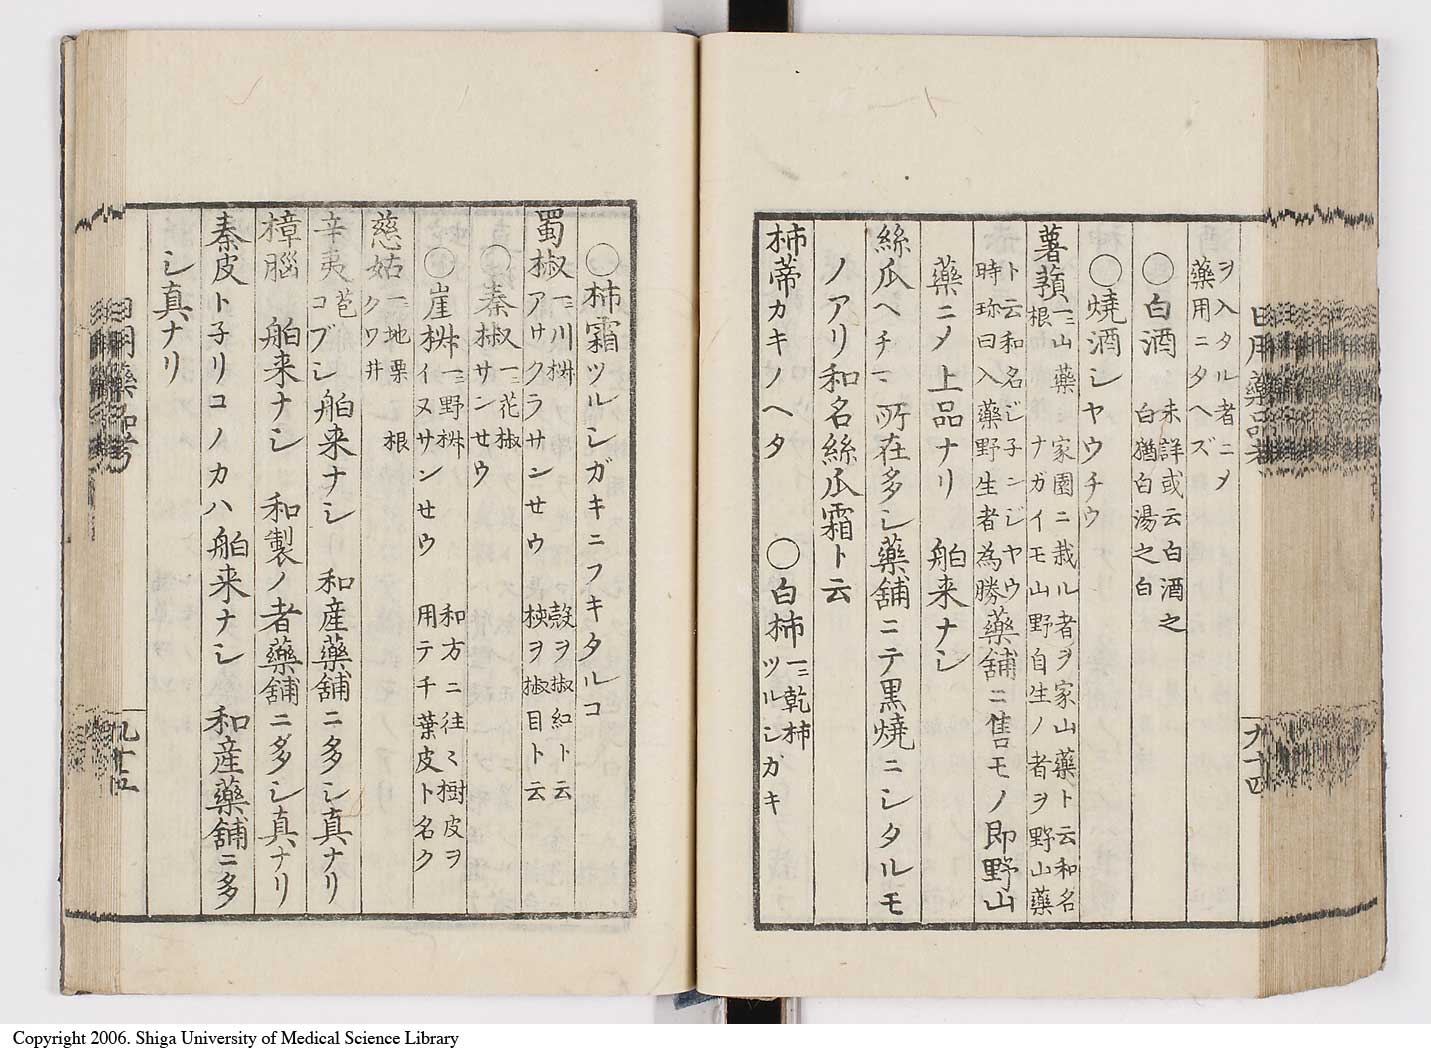 ヲ入タル者ニメ
藥用ニタヘズ
○白酒 未詳或云白酒之
白猶白湯之白
○燒酒シヤウチウ
薯蕷一ニ山藥 家園ニ栽ル者ヲ家山藥ト云和名
根 ナガイモ山野自生ノ者ヲ野山藥
ト云和名ジ子ンジヤウ
時珍曰入藥野生者為勝藥舖ニ售モノ即野山
藥ニメ上品ナリ 舶来ナシ
絲瓜ヘチマ 所在多シ藥舖ニテ黒燒ニシタルモ
ノアリ和名絲瓜霜ト云
柿蒂カキノヘタ ○白柿一ニ乾柿
ツルシカキ
日用藥品考
九十四
○柿霜ツルシガキニフキタルコ
蜀椒一ニ川椒 殼ヲ椒紅ト云
アサクラサンセウ 椒ヲ椒目ト云
○秦椒一ニ花椒
サンセウ
○崖椒一ニ野椒 和方ニ往々樹皮ヲ
イヌサンセウ 用テ千葉皮ト名ク
慈姑一ニ地栗 根
クワ井
辛夷苞 コブシ舶来ナシ 和産藥舖ニ多シ真ナリ
樟腦 舶来ナシ 和製ノ者藥舖ニ多シ真ナリ
秦皮ト子リコノカハ 舶来ナシ 和産藥舖ニ多
シ真ナリ
日用藥品考
九十五
Copyright 2006. Shiga University of Medical Science Library